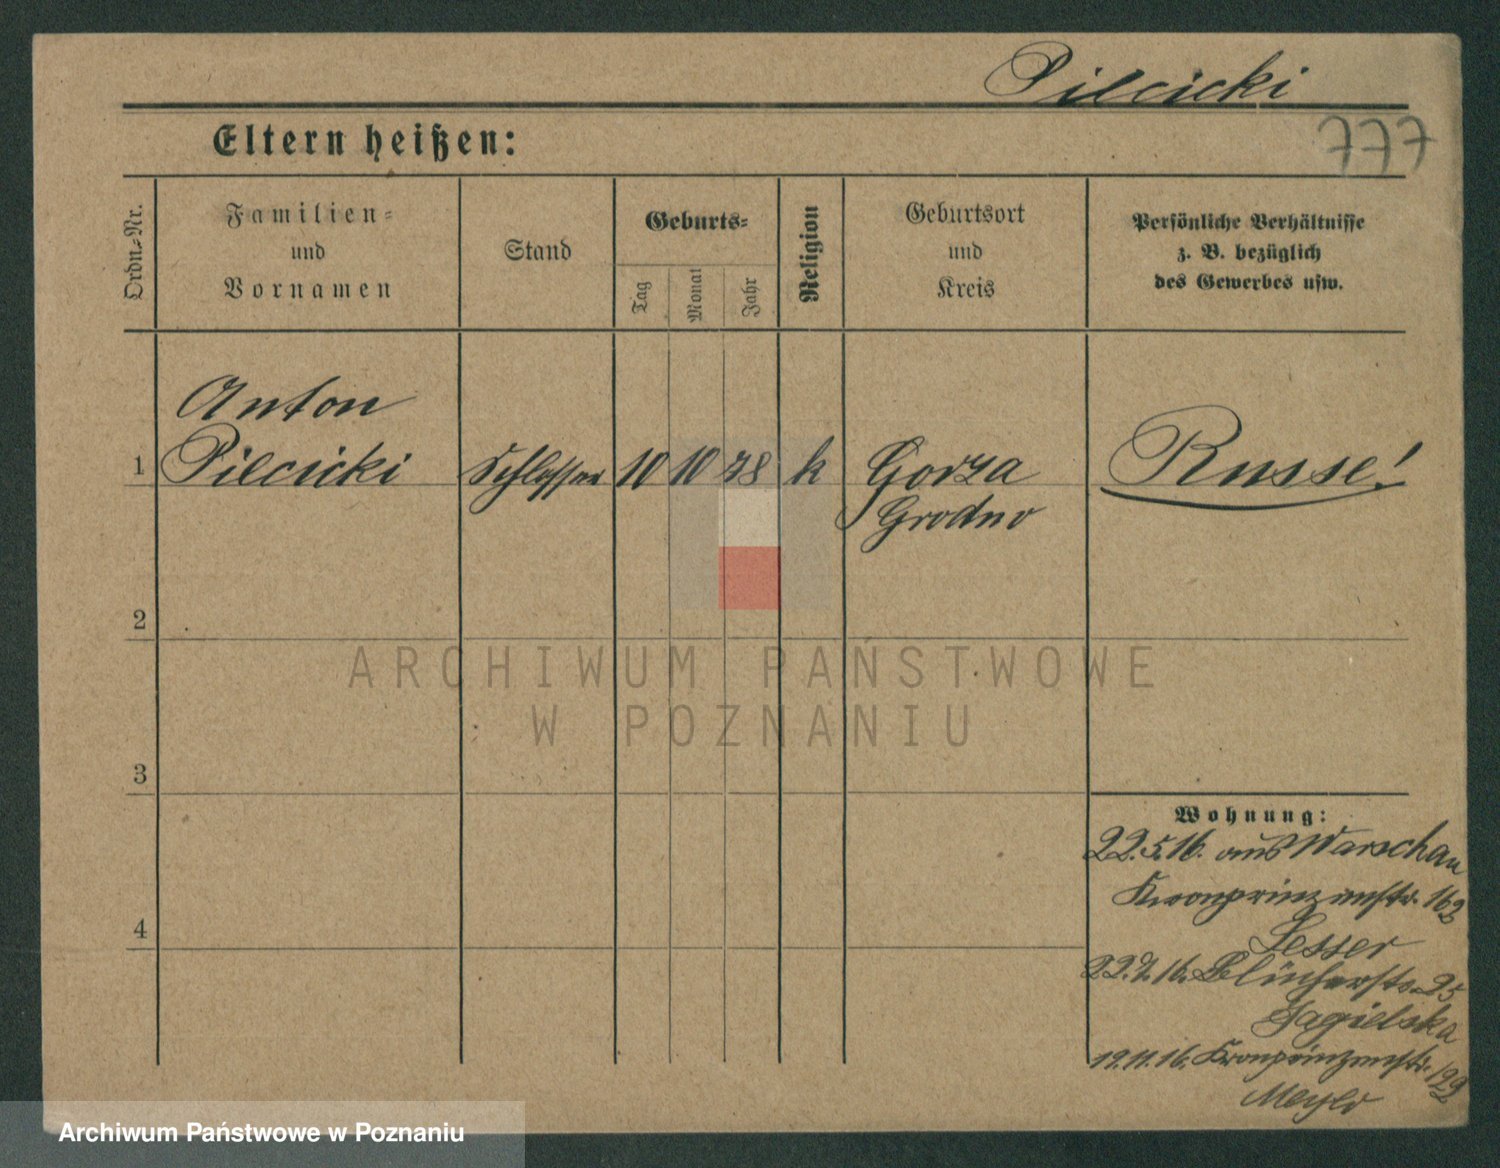 Pilcicki
777
Eltern heißen:
Ordn.-Nr.
Familien-
und
Vornamen
Stand
Geburts-
Tag
Monat
Jahr
Religion
Geburtsort
und
Kreis
Persönliche Verhältnisse
z. B. bezüglich
des Gewerbes usw.
Anton
1 Pilcicki Schlosser 10 10 78 k Gorza Russe!
Grodno
2
3
4
Wohnung:
22.5.16. aus Warschau
Kronprinzenstr. 162
Lesser
22.7.16. Blücherstr. 25
Jagielska
19.11.16. Kronprinzenstr. 122
Meyer
ARCHIWUM PAŃSTWOWE
W POZNANIU
Archiwum Państwowe w Poznaniu